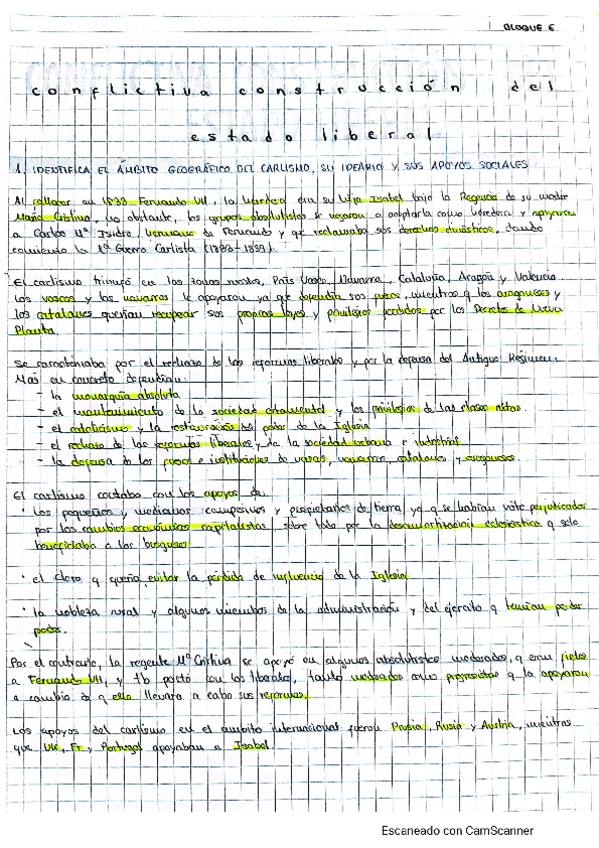 BLOQUE 6
conflictiva construcción del
estado liberal
1. IDENTIFICA EL ÁMBITO GEOGRÁFICO DEL CARLISMO, SU IDEARIO Y SUS APOYOS SOCIALES
Al fallecer en 1833 Fernando VII, la heredera era su hija Isabel bajo la Regencia de su madre
María Cristina, no obstante, los grupos absolutistas se negaron a aceptarla como heredera y apoyaron
a Carlos Mª Isidro, hermano de Fernando y q reclamaba sus derechos dinásticos, dando
comienzo la 1ª Guerra Carlista (1833-1839).
El carlismo triunfó en las zonas rurales, País Vasco, Navarra, Cataluña, Aragón y Valencia.
Los vascos y los navarros le apoyaron ya que defendía sus fueros, mientras q los aragoneses y
los catalanes querían recuperar sus propias leyes y privilegios perdidos por los Decretos de Nueva
Planta.
Se caracterizaba por el rechazo de las reformas liberales y por la defensa del Antiguo Régimen.
Mas en concreto defendían:
- la monarquía absoluta
- el mantenimiento de la sociedad estamental y los privilegios de las clases altas
- el catolicismo y la restauración del poder de la Iglesia
- el rechazo de las reformas liberales y de la sociedad urbana e industrial
- la defensa de los fueros e instituciones de vascos, navarros, catalanes y aragoneses.
El carlismo contaba con los apoyos de:
· los pequeños y medianos campesinos y propietarios de tierra ya q se habían visto perjudicados
por los cambios económicos capitalistas, sobre todo por la desamortización eclesiástica q solo
beneficiaba a los burgueses
· el clero q quería evitar la pérdida de influencia de la Iglesia
· la nobleza rural y algunos miembros de la administración y del ejército q temían perder
poder.
Por el contrario, la regente Mª Cristina se apoyó en algunos absolutistas moderados, q eran fieles
a Fernando VII, y tb pactó con los liberales, tanto moderados como progresistas q la apoyaron
a cambio de q ella llevara a cabo sus reformas.
Los apoyos del carlismo en el ámbito internacional fueron Prusia, Rusia y Austria, mientras
que UK, Fr y Portugal apoyaban a Isabel
Escaneado con CamScanner